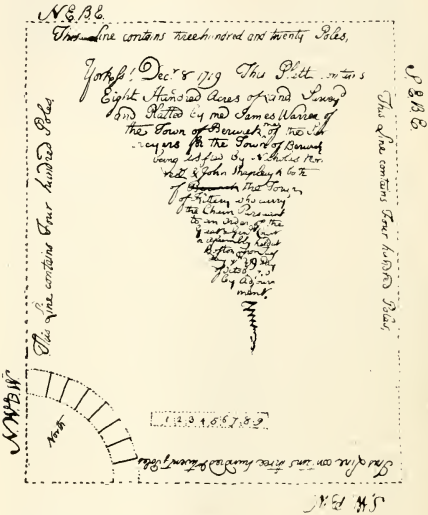 N.E.B.E.
This Line contains three hundred and twenty Poles,
S.E.B.E.
York ss! Decr 8 1719 This Platt contains
Eight Hundred Acres of Land Survey
and Platted by me James Warren of
the Town of Berwick one of the Sur
veyers for the Town of Berwick
being assisted By Nicholas
& John Shapleigh both
of the Town
of Kittery who carry
the Chain Pursuant
to an order of the
Great & Gen
Assembly held at
Boston
by Adjour
ment.
This Line contains Four hundred Poles
This Line contains Four hundred Poles,
N.W.B.W.
North
1 2 3 4 5 6 7 8 9
This Line contains three hundred & twenty Poles
S.W.B.W.